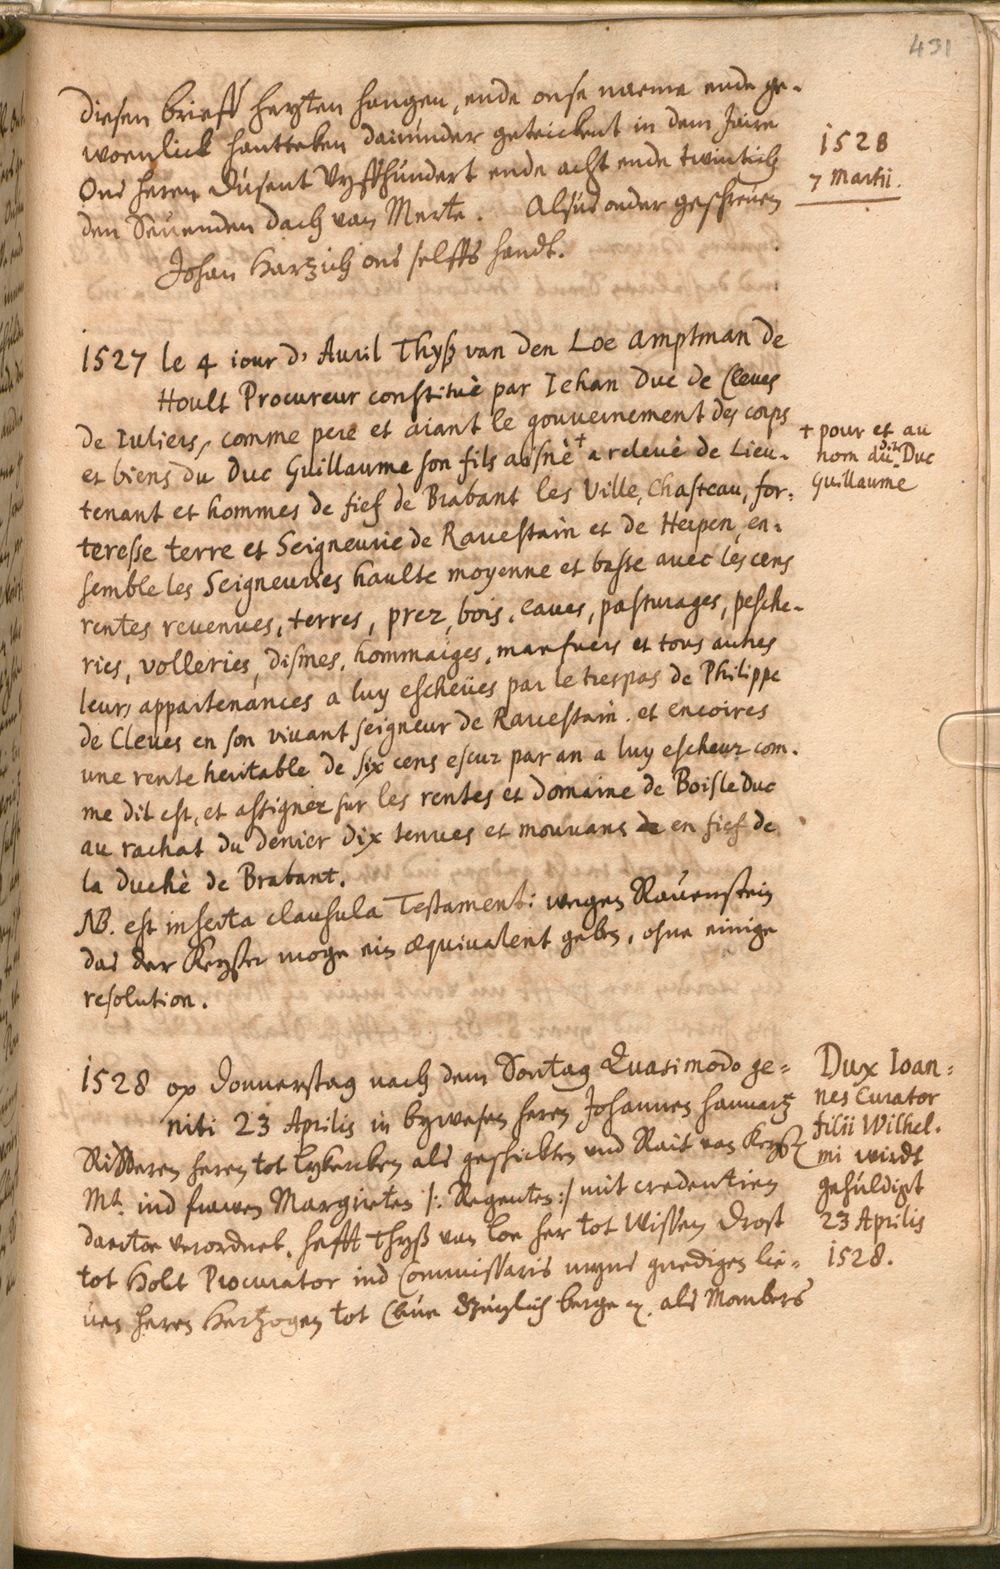 431
diesen brieff heyten hangen, ende onse naeme ende ge-
woenlick hantteken dairunder geteickent in dem Jaire
Ons heren dusent Vyffhundert ende acht ende twintich
den Seuenden dach van Merte. Alsus onder geschreuen
Johan Hartzich ons selffs handt.
1528
7 Martii.
1527 le 4 iour d' Auril Thyß van den Loe Amptman de
Hoult Procureur constituè par Iehan Duc de Cleues
de Iuliers, comme pere et aiant le gouvernement des corps
et biens du Duc Guillaume son fils aisnè + a relevè de Lieu-
tenant et hommes de fief de Brabant les Ville, Chasteau, for-
teresse terre et Seigneurie de Rauestain et de Herpen, en-
semble les Seigneuries haulte moyenne et basse avec les cens
rentes revenues, terres, prez, bois, eaues, pasturages, pesche-
ries, volleries, dismes, hommaiges, et tous autres
leurs appartenances a luy escheües par le trespas de Philippe
de Cleues en son vivant seigneur de Rauestain. et encoires
une rente heritable de six cens escuz par an a luy escheuz com-
me dit est, et assignez sur les rentes et domaine de Boisleduc
au rachat du denier dix tenues et mouvans de en fief de
la duchè de Brabant.
+ pour et au
nom du dit Duc
Guillaume
NB. est inserta clausula Testament: wegen Rauenstein
das der Keyser moge ein æquivalent geben, ohne einige
resolution.
1528 op Donnerstag nach dem Sontag Quasimodo ge-
niti 23 Aprilis in bywesen heren Johannes hannartz
Ritteren heren tot lykercken als geschickten vnd Rait van Keyß
Mt. ind frawen Margrieten /: Regenten :/ mit credentien
daertoe verordnet. hefft Thyß van Loe her tot Wissen Drost
tot Holt Procurator ind Commissaris myns gnedigen lie-
uen heren Hertzogen tot Cleue Guylich berge ꝛc. als Mombers
Dux Ioan-
nes Curator
filii Wilhel-
mi wirdt
gehuldigt
23 Aprilis
1528.